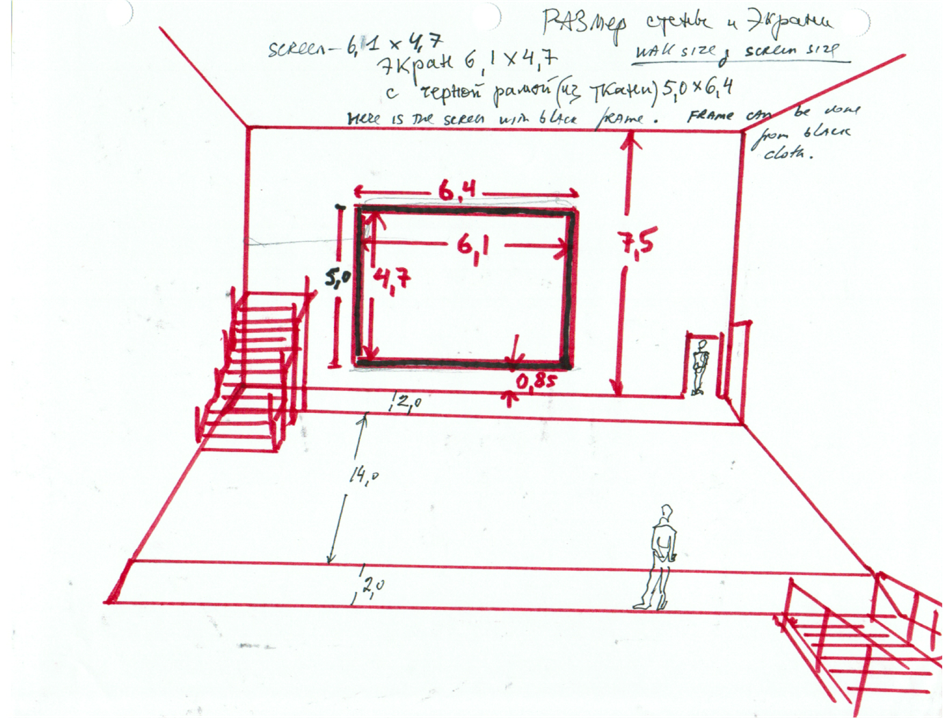 РАЗМЕР стены и Экрана
WALL SIZE & SCREEN SIZE
SCREEN – 6,1 x 4,7
ЭКРАН 6,1 x 4,7
с черной рамой (из ткани) 5,0 x 6,4
HERE IS THE SCREEN WITH black frame. FRAME CAN be done
from black
cloth.
6,4
6,1
7,5
5,0
4,7
0,85
2,0
14,0
2,0